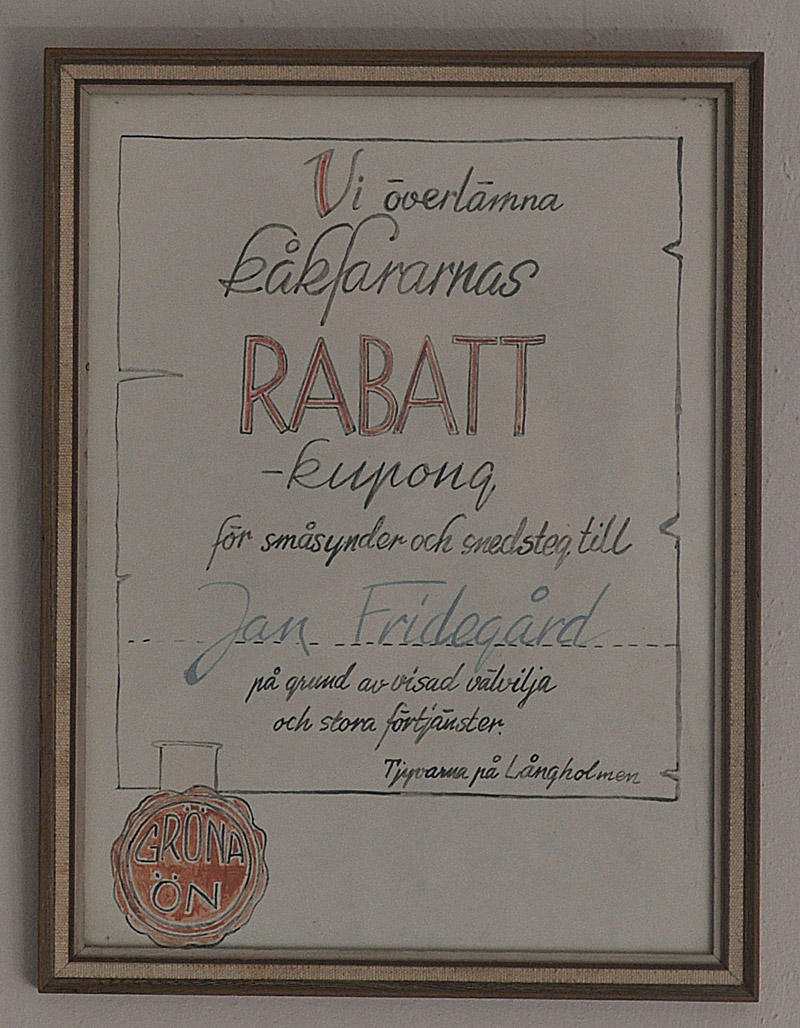 Vi överlämna
kåkfararnas
RABATT
-kupong
för småsynder och snedsteg till
Jan Fridegård
på grund av visad välvilja
och stora förtjänster.
Tjyvarna på Långholmen
GRÖNA
ÖN